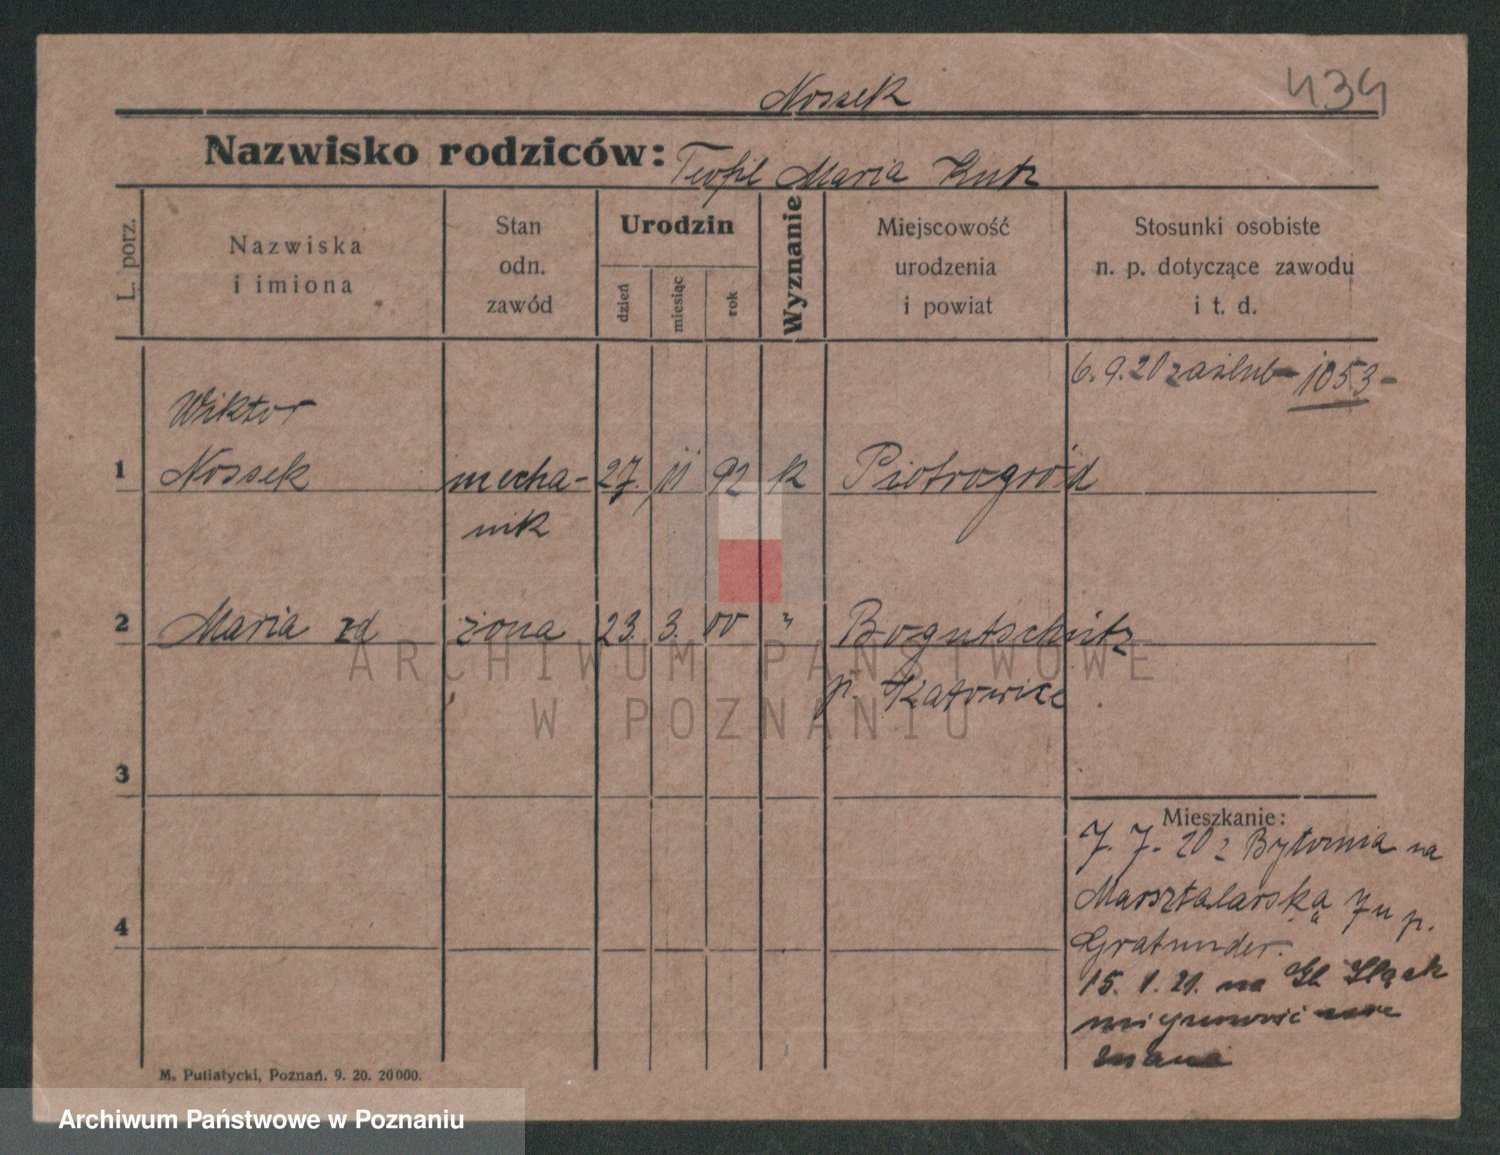 Nossek
434
Nazwisko rodziców: Teofil Maria Kutz
L. porz.
Nazwiska
i imiona
Stan
odn.
zawód
Urodzin
dzień
miesiąc
rok
Wyznanie
Miejscowość
urodzenia
i powiat
Stosunki osobiste
n. p. dotyczące zawodu
i t. d.
6. 9. 20 zaślub 1053
1 Wiktor
Nossek mecha- 27. 11 92 k Piotrogród
nik
2 Maria zd żona 23. 3. 00 " Bogutschütz
p. Katowice
3
4
Mieszkanie:
7. 7. 20 z Bytomia na
Marsztalarską 7 u p.
Gratunder.
15. 1. 21. na Gł Śląsk
miejscowość
znana
M. Putiatycki, Poznań. 9. 20. 20000.
ARCHIWUM PAŃSTWOWE
W POZNANIU
Archiwum Państwowe w Poznaniu